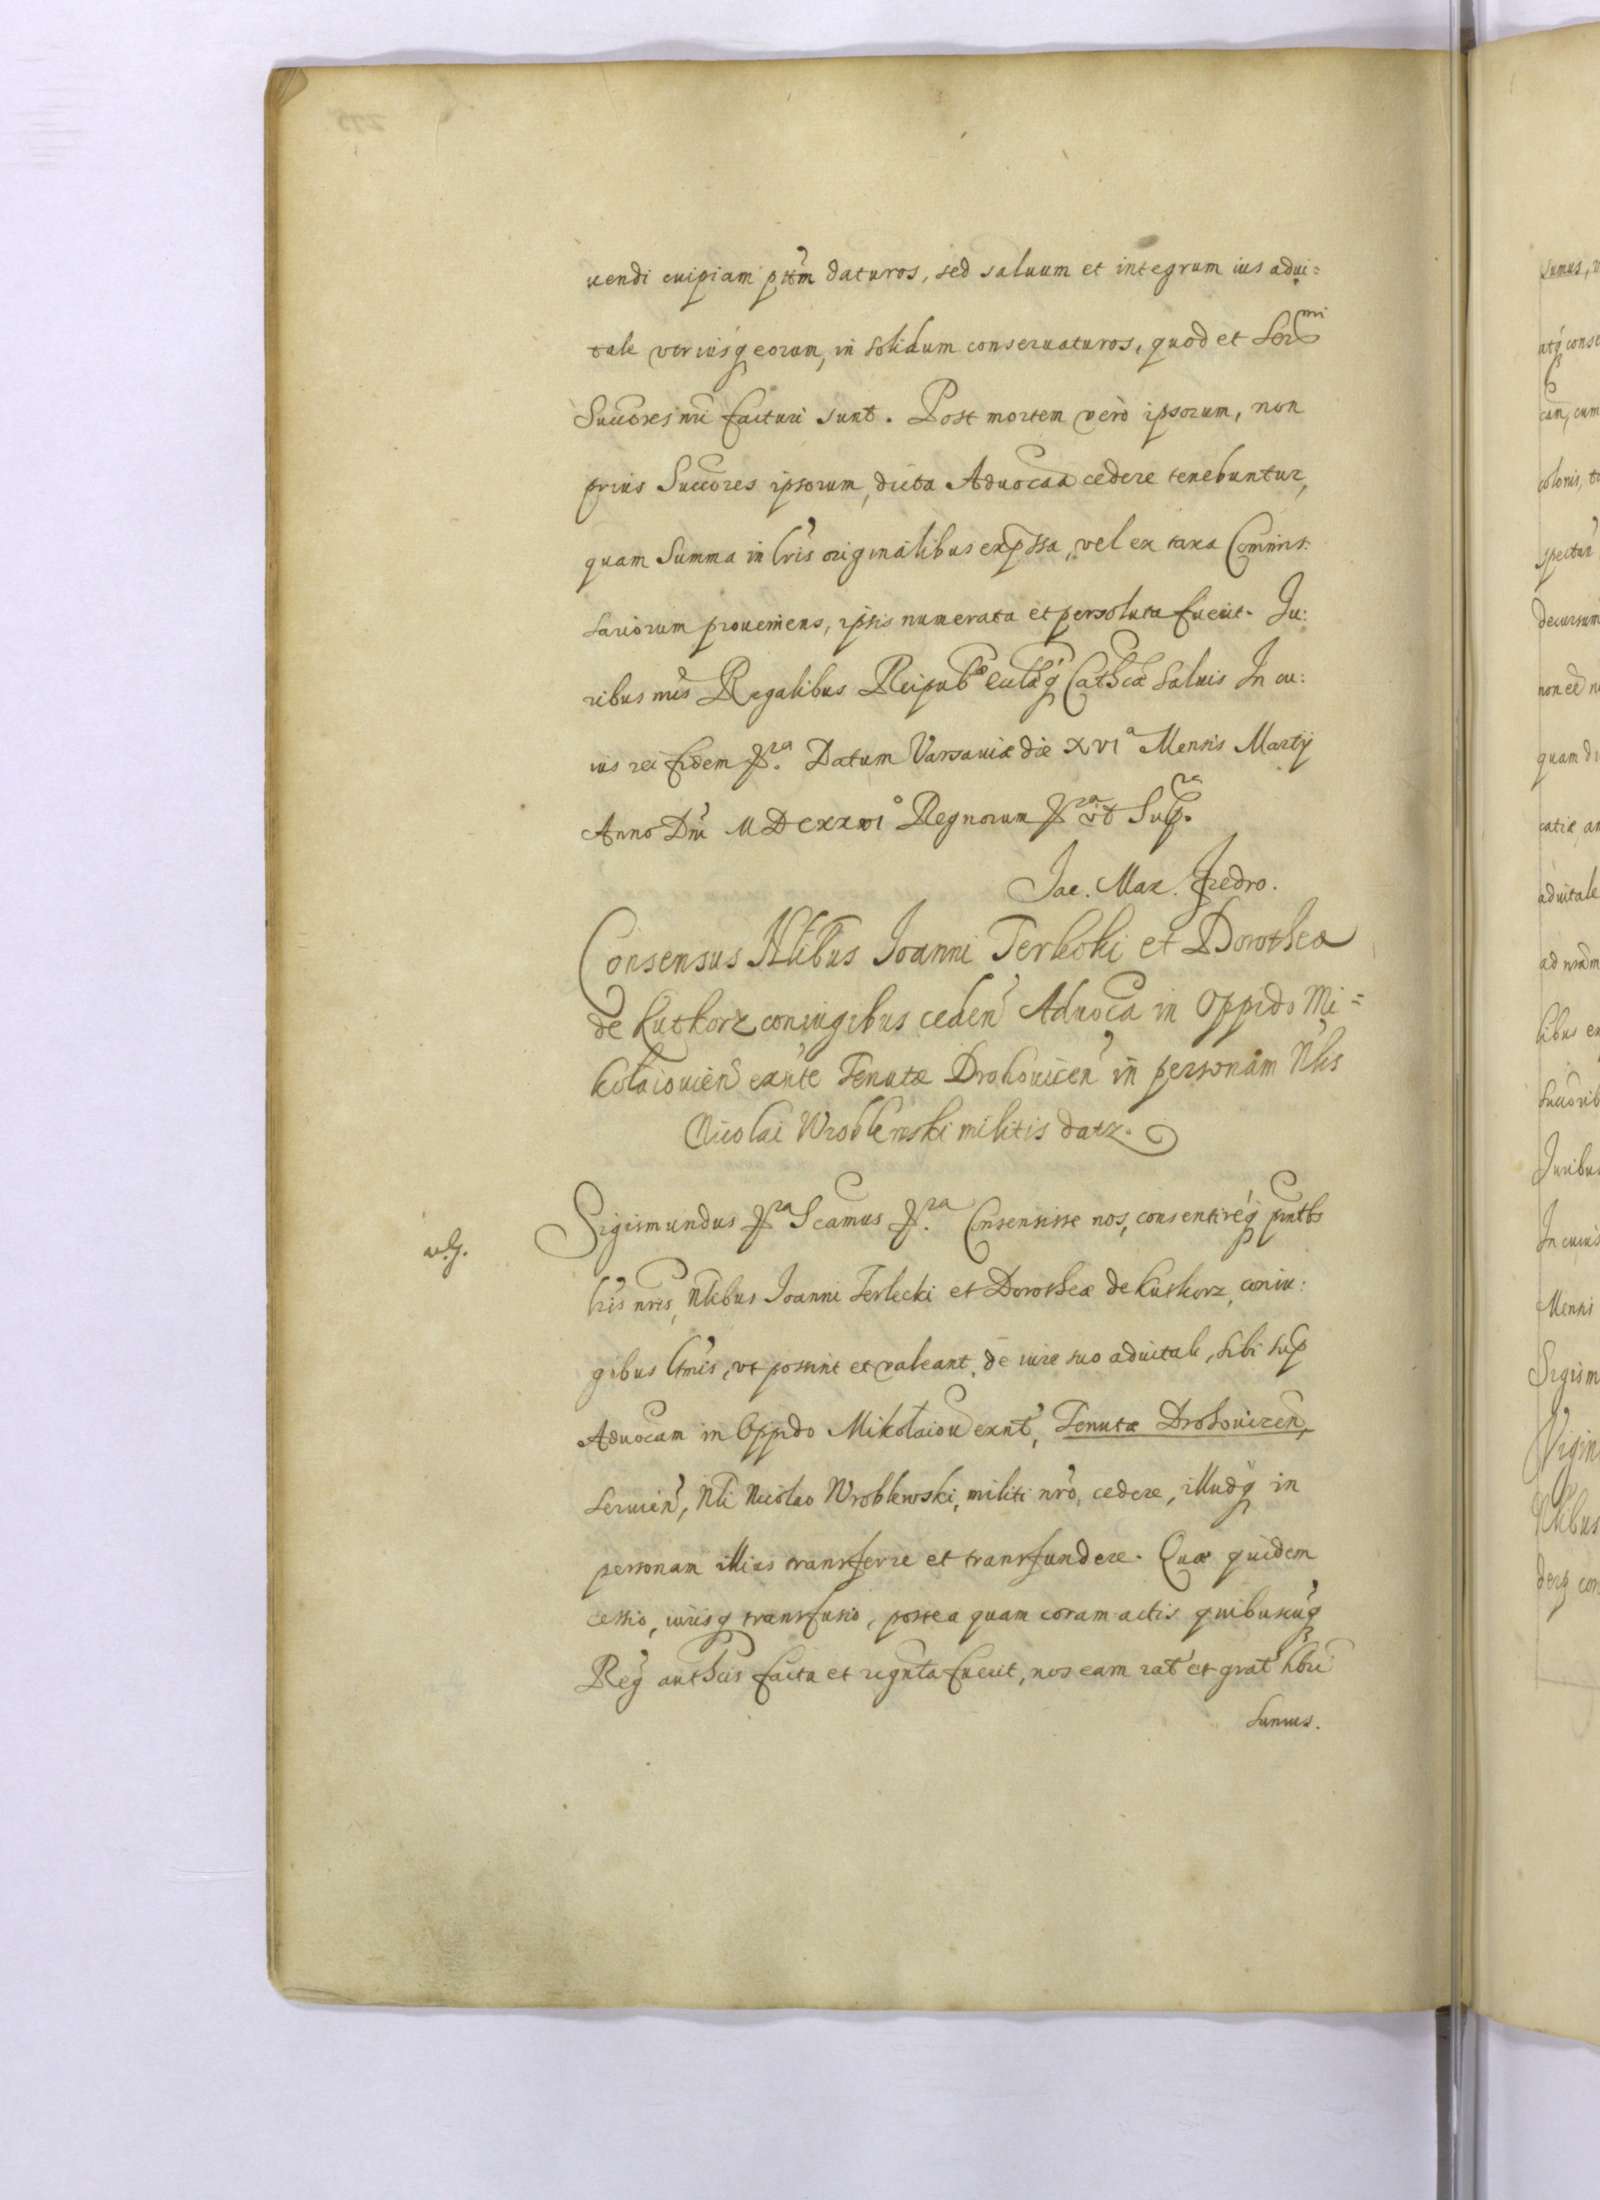 uendi cuipiam ptm daturos, sed saluum et integrum ius adui:
tale vtriusq eorum, in solidum conseruaturos, quod et Sermi
Succores nri facturi sunt. Post mortem vero ipsorum, non
prius Succores ipsorum, dicta Aduocaa cedere tenebuntur,
quam summa in lris originalibus expssa, vel ex taxa Commis:
sariorum proueniens, ipsis numerata et persoluta fuerit. Iu:
ribus nris Regalibus Reipub Eccliaeq Cathcae saluis In cu:
ius rei fidem &ra. Datum Varsauiae die XVIa Mensis Martij
Anno Dni MDCXXVIo Regnorum &ra vt Supra.
Jac. Max. Fredro.
Consensus Nlibus Joanni Terlecki et Dorothea
de Kutkorz coniugibus ceden Aduoca in Oppido Mi=
kolaiouien exnte Tenutae Drohouicen in personam Nlis
Nicolai Wroblewski militis datz.
Sigismundus &ra Scamus &ra. Consensisse nos, consentireq pntbs
lris nris, Nlibus Joanni Terlecki et Dorotheae de Kutkorz, coniu:
gibus ltmis, vt possint et valeant, de iure suo aduitali, sibi sup
Aduocam in Oppido Mikolaiou exnt, Tenutae Drohouicen,
seruien, Nli Nicolao Wroblewski, militi nro, cedere, illudq in
personam illius transferre et transfundere. Quae quidem
cessio, iurisq transfusio, postea quam coram actis quibuscuq
Reg authcis facta et recgnta fuerit, nos eam rat et grat hbri
sumus.